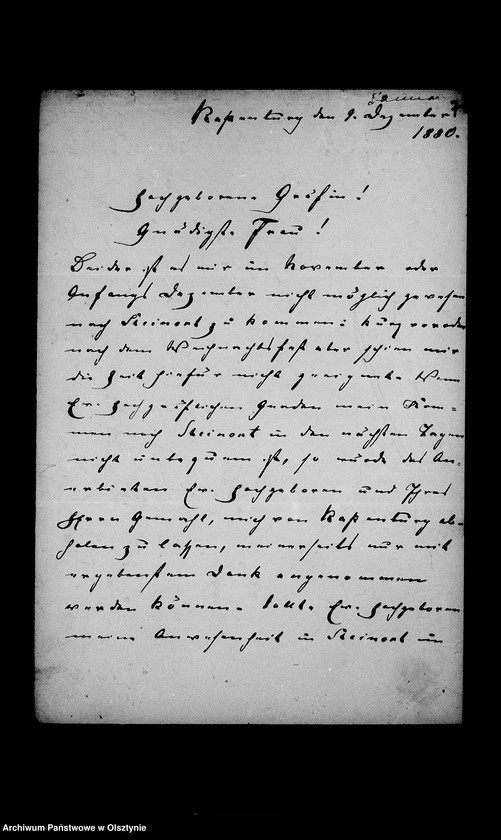 Januar
Rastenburg den 9. Dezember
1880.
Hochgeborene Gräfin!
Gnädigste Frau!
Leider ist es mir im November oder
Anfangs Dezember nicht möglich gewesen
nach Steinort zu kommen; kurz vor oder
nach dem Weihnachtsfest aber schien mir
die Zeit hiefür nicht geeignet. Wenn
Ew. Hochgräflichen Gnaden mein Kom-
men nach Steinort in den nächsten Tagen
nicht unbequem ist, so würde das An-
erbieten Ew. Hochgeboren und Ihres
Herrn Gemahl, mich von Rastenburg ab-
holen zu lassen, meinerseits nur mit
ergebenstem Dank angenommen
werden können. Sollte Ew. Hochgeboren
meine Anwesenheit in Steinort im
Archiwum Państwowe w Olsztynie